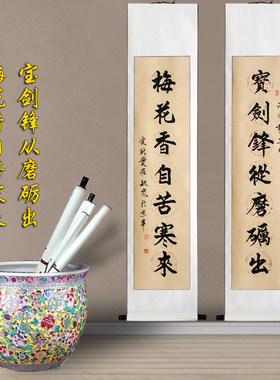 宝剑锋从磨砺出
梅花香自苦寒来
寶劍鋒從磨礪出
梅花香自苦寒來